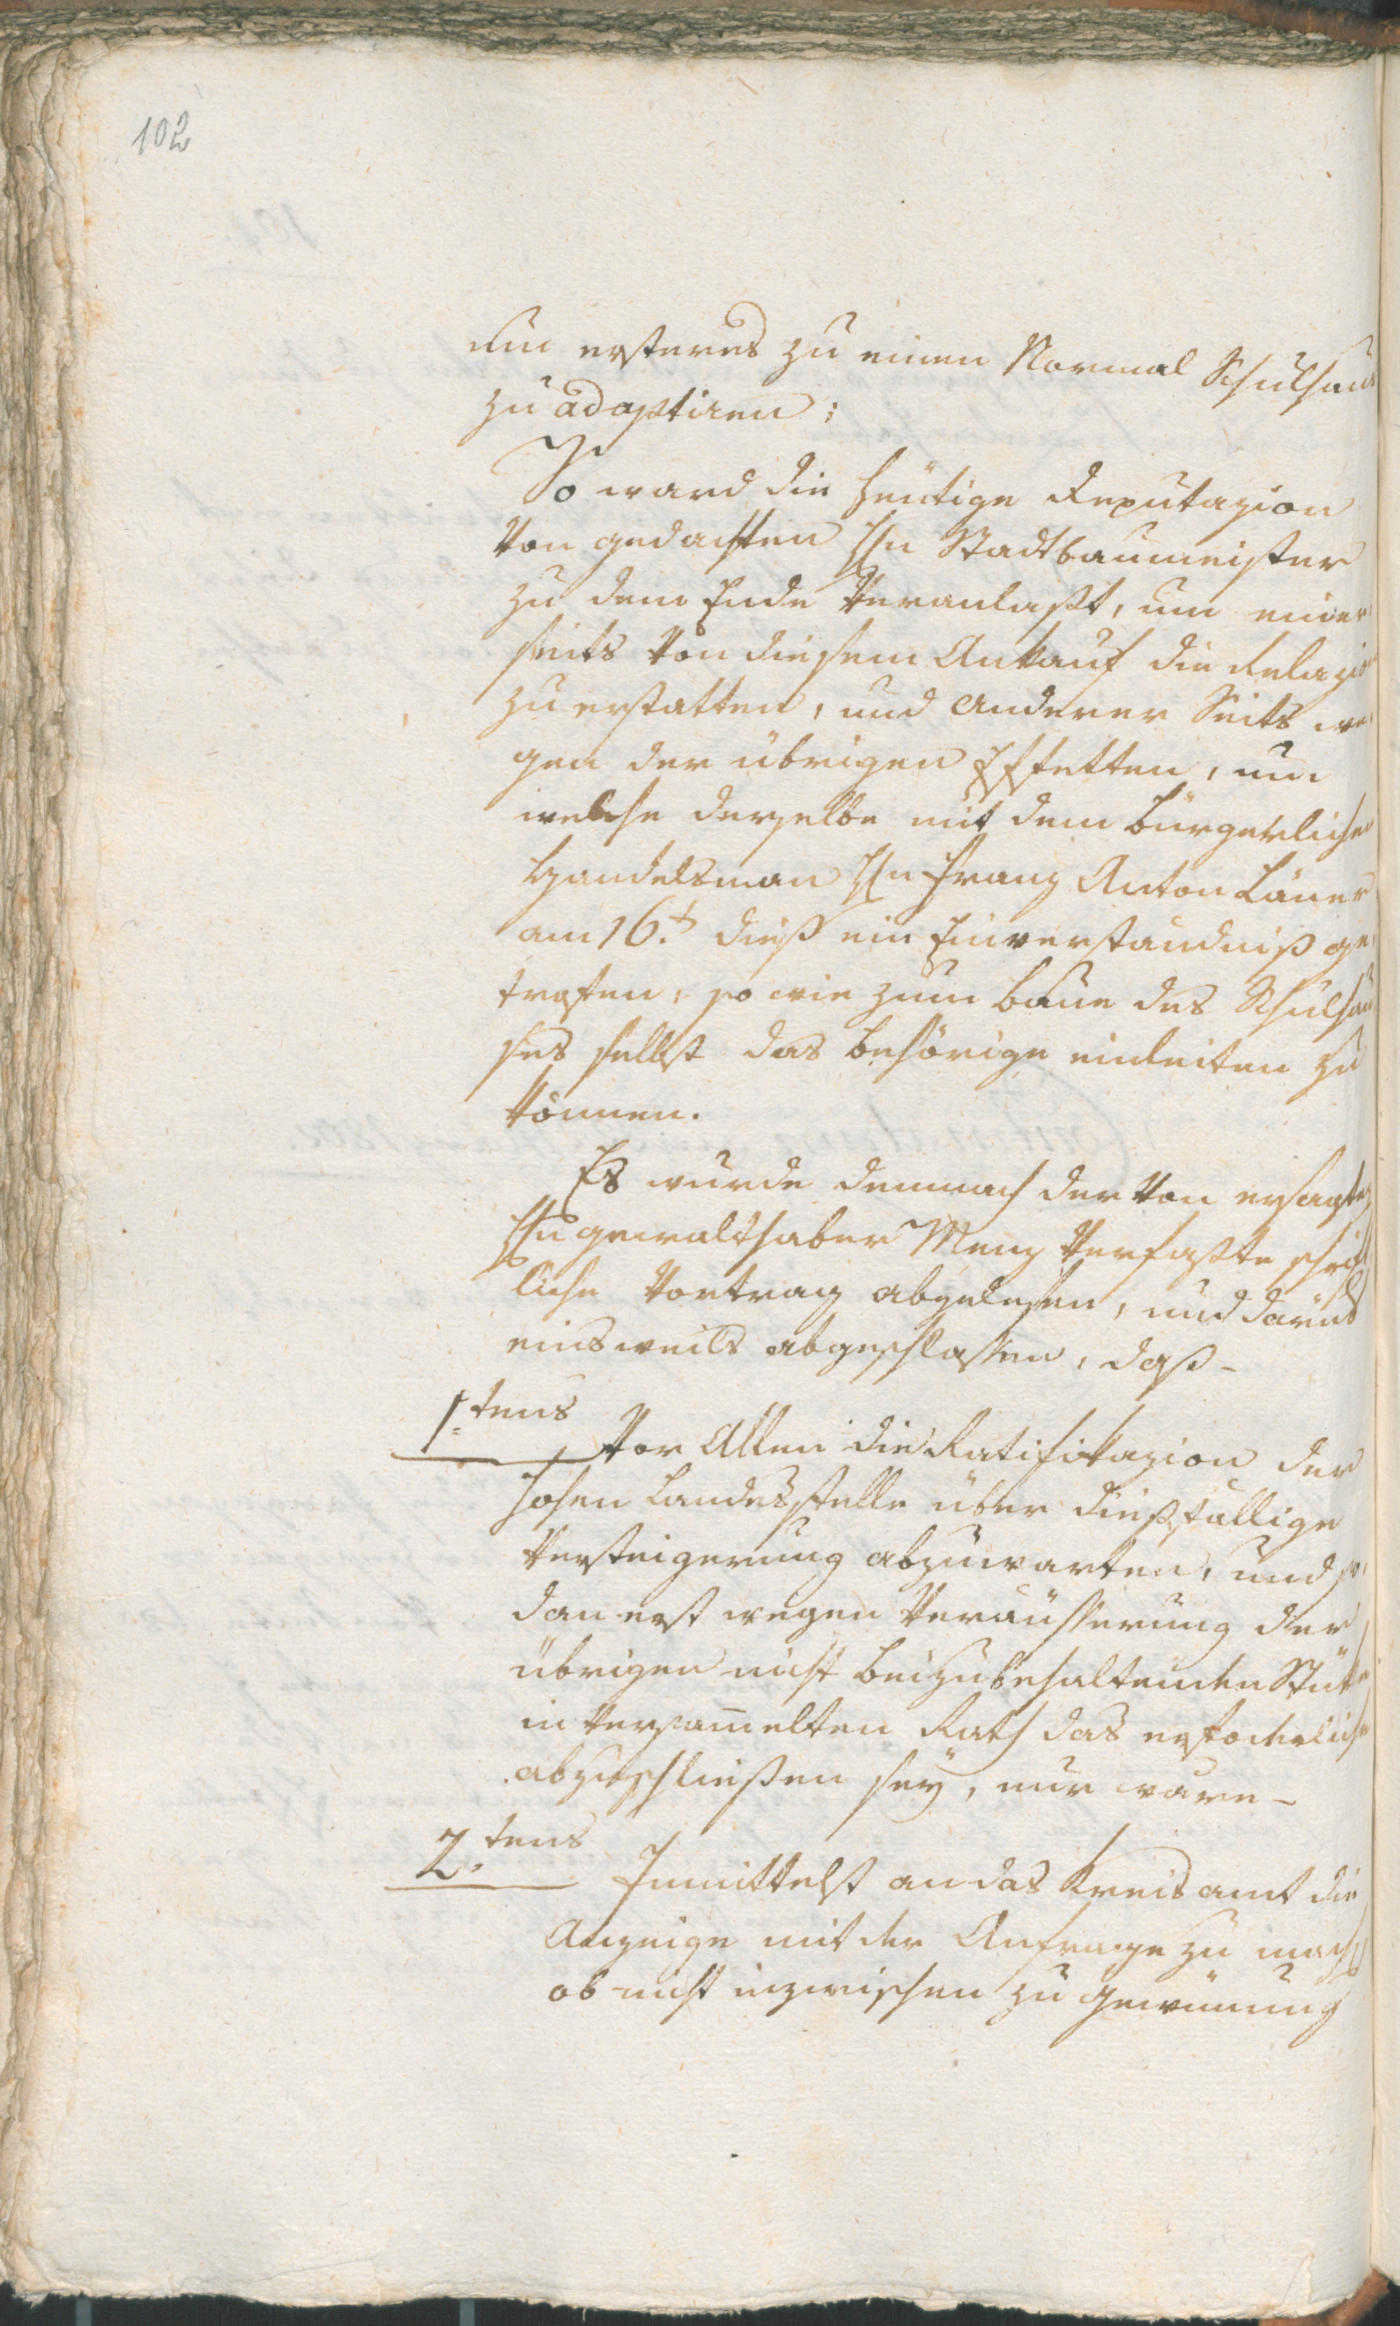 102
um ersteres zu einen Normal Schulhaus
zu adaptiren;
So ward die heutige Deputazion
von gedachten Hn Stadtbaumeister
zu dem Ende veranlaßt, um einer
seits von diesem Ankauf die Relazion
zu erstatten, und anderer Seits we
gen der übrigen Effekten, um
welche derselbe mit dem bürgerlichen
Handelsman Hn Franz Anton Läner
am 16.t dieß ein Einverständniß ge
troffen, so wie zum Baue des Schulhau
ses selbst das behörige einleiten zu
können.
Es wurde demnach der von ersagten
Hn Gewalthaber Menz verfaßte schrift
liche Vortrag abgelesen, und daraus
einsweils abgeschlossen, daß-
1.tens
Vor Allen die Ratifikazion der
hohen Landesstelle über dießfällige
Versteigerung abzuwarten, und so
dan erst wegen Veräusserung der
übrigen nicht beizubehaltenden Stüke
in versam̄elten Rath das erforderliche
abzuschließen sey, nur wäre-
2.tens
Inmittelst an das Kreisamt die
Anzeige mit der Anfrage zu mach
ob nicht inzwischen zu Gewinnung